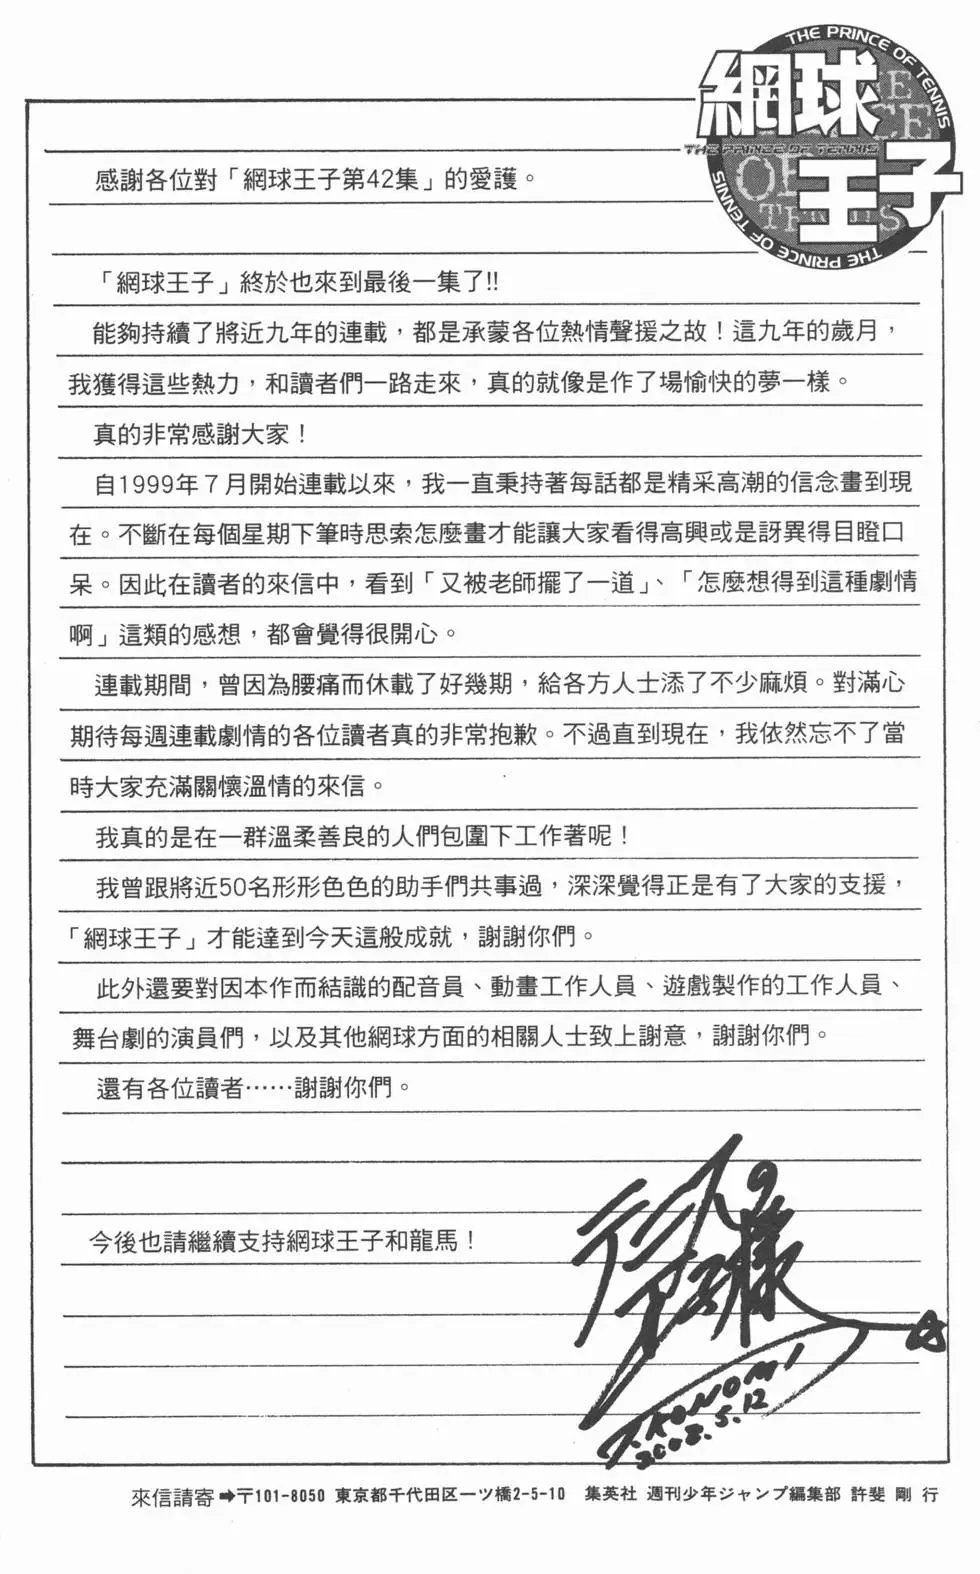 THE PRINCE OF TENNIS
網球
THE PRINCE OF TENNIS
王子
THE PRINCE OF TENNIS
感謝各位對「網球王子第42集」的愛護。
「網球王子」終於也來到最後一集了!!
能夠持續了將近九年的連載，都是承蒙各位熱情聲援之故！這九年的歲月，
我獲得這些熱力，和讀者們一路走來，真的就像是作了場愉快的夢一樣。
真的非常感謝大家！
自1999年７月開始連載以來，我一直秉持著每話都是精采高潮的信念畫到現
在。不斷在每個星期下筆時思索怎麼畫才能讓大家看得高興或是訝異得目瞪口
呆。因此在讀者的來信中，看到「又被老師擺了一道」、「怎麼想得到這種劇情
啊」這類的感想，都會覺得很開心。
連載期間，曾因為腰痛而休載了好幾期，給各方人士添了不少麻煩。對滿心
期待每週連載劇情的各位讀者真的非常抱歉。不過直到現在，我依然忘不了當
時大家充滿關懷溫情的來信。
我真的是在一群溫柔善良的人們包圍下工作著呢！
我曾跟將近50名形形色色的助手們共事過，深深覺得正是有了大家的支援，
「網球王子」才能達到今天這般成就，謝謝你們。
此外還要對因本作而結識的配音員、動畫工作人員、遊戲製作的工作人員、
舞台劇的演員們，以及其他網球方面的相關人士致上謝意，謝謝你們。
還有各位讀者……謝謝你們。
今後也請繼續支持網球王子和龍馬！
T.KONOMI
2008.5.12
來信請寄➡〒101-8050 東京都千代田区一ツ橋2-5-10　集英社 週刊少年ジャンプ編集部 許斐 剛 行